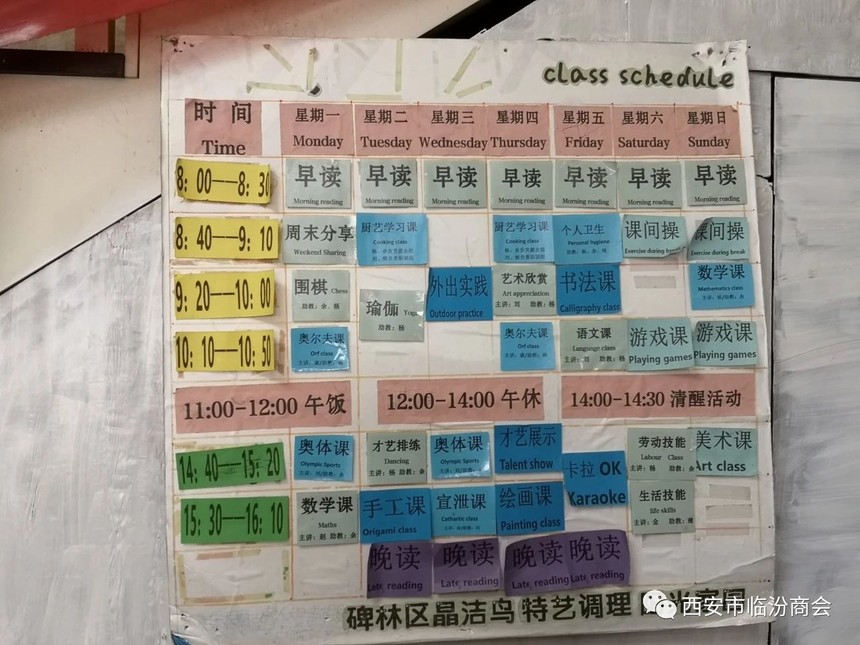 class schedule
时 间 星期一 星期二 星期三 星期四 星期五 星期六 星期日
Time Monday Tuesday Wednesday Thursday Friday Saturday Sunday
8:00—8:30 早读 早读 早读 早读 早读 早读 早读
Morning reading Morning reading Morning reading Morning reading Morning reading Morning reading Morning reading
8:40—9:10 周末分享 厨艺学习课 厨艺学习课 个人卫生 课间操 课间操
Weekend Sharing Cooking class Cooking class Personal hygiene Exercise during break Exercise during break
9:20—10:00 围棋 Chess 瑜伽 Yoga 外出实践 艺术欣赏 书法课 数学课
助教:余、杨 助教:杨 Outdoor practice Art appreciation Calligraphy class Mathematics class
10:10—10:50 奥尔夫课 奥尔夫课 语文课 游戏课 游戏课
Orf class Orf class Language class Playing games Playing games
11:00-12:00 午饭 12:00-14:00 午休 14:00-14:30 清醒活动
14:40—15:20 奥体课 才艺排练 奥体课 才艺展示 卡拉OK 劳动技能 美术课
Olympic Sports Dancing Olympic Sports Talent show Karaoke Labour Class Art class
主讲:杨 助教:余 主讲:杨 助教:余
15:30—16:10 数学课 手工课 宣泄课 绘画课 生活技能
Maths Origami class Cathartic class Painting class life skills
主讲:赵 助教:余 主讲:金
晚读 晚读 晚读 晚读
Late reading Late reading Late reading Late reading
碑林区晶洁鸟 特艺调理
西安市临汾商会